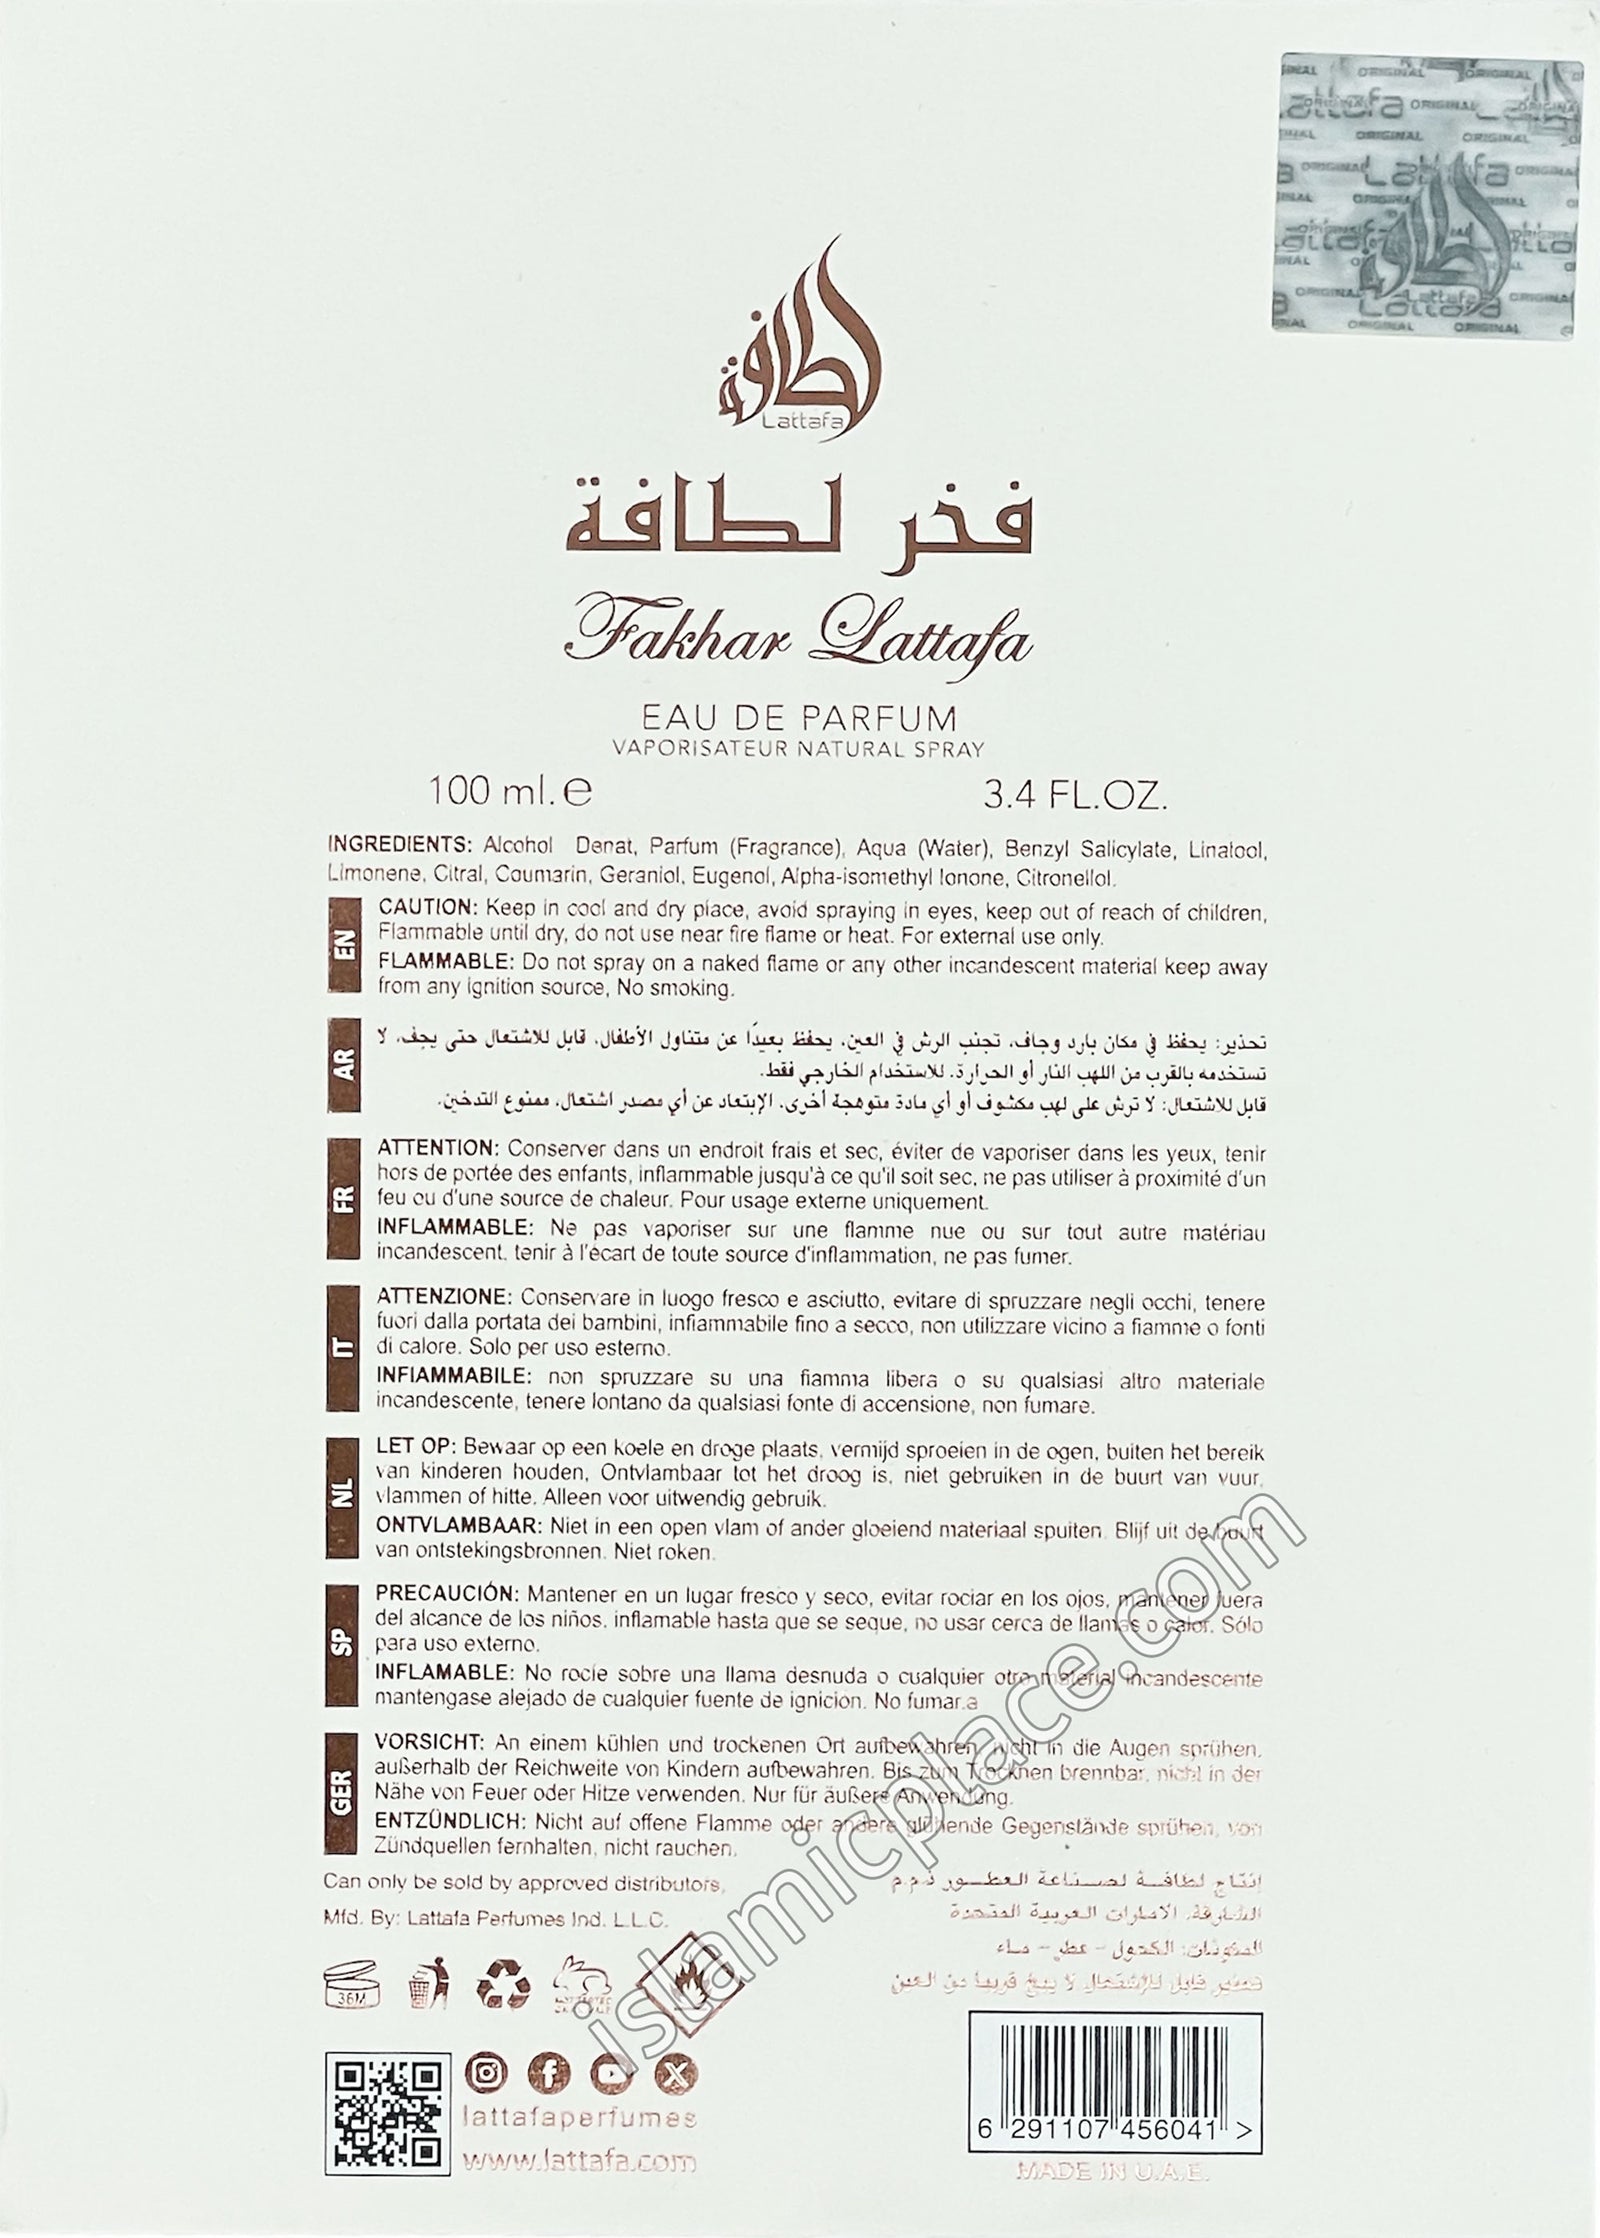 ORIGINAL
Lattafa
لطافة
Lattafa
فخر لطافة
Fakhar Lattafa
EAU DE PARFUM
VAPORISATEUR NATURAL SPRAY
100 ml. e 3.4 FL.OZ.
INGREDIENTS: Alcohol Denat, Parfum (Fragrance), Aqua (Water), Benzyl Salicylate, Linalool,
Limonene, Citral, Coumarin, Geraniol, Eugenol, Alpha-isomethyl Ionone, Citronellol.
EN
CAUTION: Keep in cool and dry place, avoid spraying in eyes, keep out of reach of children,
Flammable until dry, do not use near fire flame or heat. For external use only.
FLAMMABLE: Do not spray on a naked flame or any other incandescent material keep away
from any ignition source, No smoking.
AR
تحذير: يحفظ في مكان بارد وجاف، تجنب الرش في العين، يحفظ بعيداً عن متناول الأطفال، قابل للاشتعال حتى يجف، لا
تستخدمه بالقرب من اللهب النار أو الحرارة. للاستخدام الخارجي فقط.
قابل للاشتعال: لا ترش على لهب مكشوف أو أي مادة متوهجة أخرى. الإبتعاد عن أي مصدر اشتعال، ممنوع التدخين.
FR
ATTENTION: Conserver dans un endroit frais et sec, éviter de vaporiser dans les yeux, tenir
hors de portée des enfants, inflammable jusqu'à ce qu'il soit sec, ne pas utiliser à proximité d'un
feu ou d'une source de chaleur. Pour usage externe uniquement.
INFLAMMABLE: Ne pas vaporiser sur une flamme nue ou sur tout autre matériau
incandescent, tenir à l'écart de toute source d'inflammation, ne pas fumer.
IT
ATTENZIONE: Conservare in luogo fresco e asciutto, evitare di spruzzare negli occhi, tenere
fuori dalla portata dei bambini, infiammabile fino a secco, non utilizzare vicino a fiamme o fonti
di calore. Solo per uso esterno.
INFIAMMABILE: non spruzzare su una fiamma libera o su qualsiasi altro materiale
incandescente, tenere lontano da qualsiasi fonte di accensione, non fumare.
NL
LET OP: Bewaar op een koele en droge plaats, vermijd sproeien in de ogen, buiten het bereik
van kinderen houden, Ontvlambaar tot het droog is, niet gebruiken in de buurt van vuur,
vlammen of hitte. Alleen voor uitwendig gebruik.
ONTVLAMBAAR: Niet in een open vlam of ander gloeiend materiaal spuiten. Blijf uit de buurt
van ontstekingsbronnen. Niet roken.
SP
PRECAUCIÓN: Mantener en un lugar fresco y seco, evitar rociar en los ojos, mantener fuera
del alcance de los niños, inflamable hasta que se seque, no usar cerca de llamas o calor. Sólo
para uso externo.
INFLAMABLE: No rocíe sobre una llama desnuda o cualquier otro material incandescente
mantengase alejado de cualquier fuente de ignicion. No fumar.a
GER
VORSICHT: An einem kühlen und trockenen Ort aufbewahren, nicht in die Augen sprühen,
außerhalb der Reichweite von Kindern aufbewahren. Bis zum Trocknen brennbar, nicht in der
Nähe von Feuer oder Hitze verwenden. Nur für äußere Anwendung.
ENTZÜNDLICH: Nicht auf offene Flamme oder andere glühende Gegenstände sprühen, von
Zündquellen fernhalten, nicht rauchen.
Can only be sold by approved distributors,
Mfd. By: Lattafa Perfumes Ind. L.L.C.
إنتاج لطافة لصناعة العطور ذ.م.م
الشارقة، الامارات العربية المتحدة
المكونات: الكحول - عطر - ماء
تحذير قابل للإشتعال لا يبخ قريبا من العين
36M
islamicplace.com
lattafaperfumes
www.lattafa.com
6 291107 456041 >
MADE IN U.A.E.